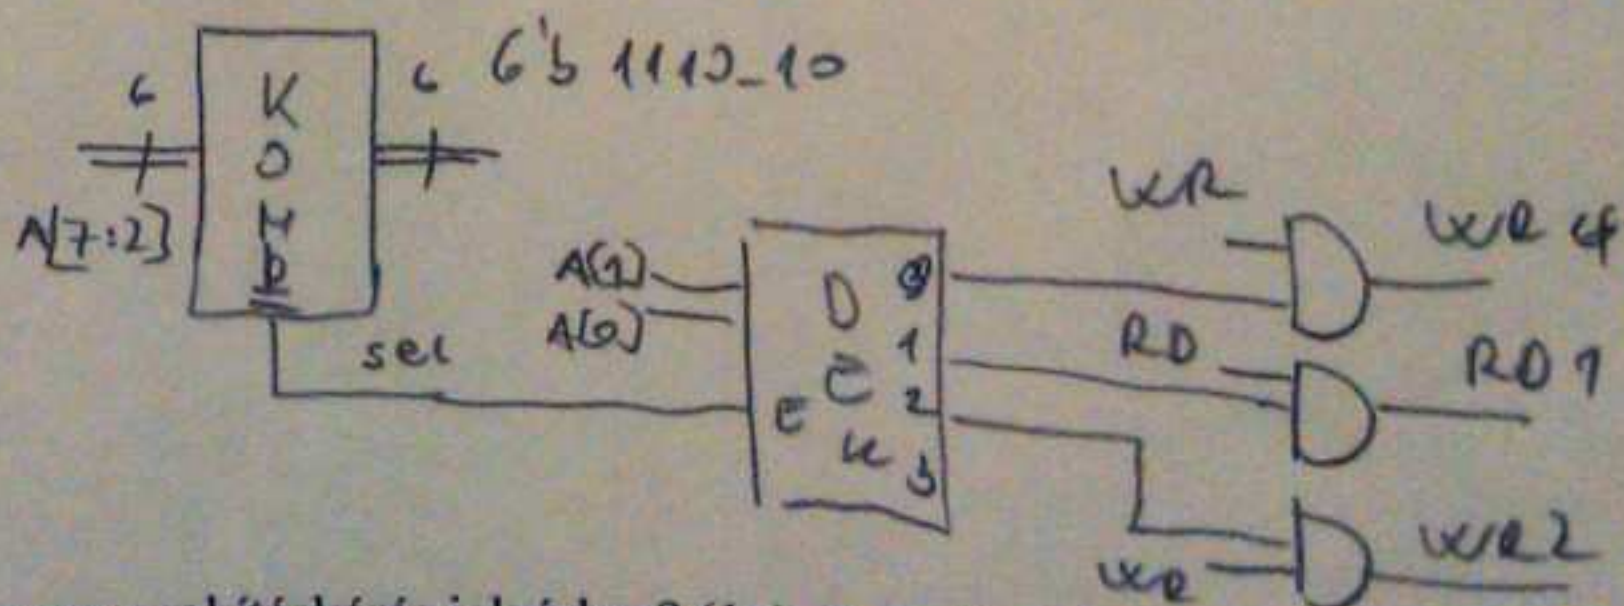 6 6 6'b 1110_10
KOMP
A[7:2]
sel
A[1]
A[0]
E
DEK
0
1
2
3
WR
WR
RD
RD1
WR
WR2